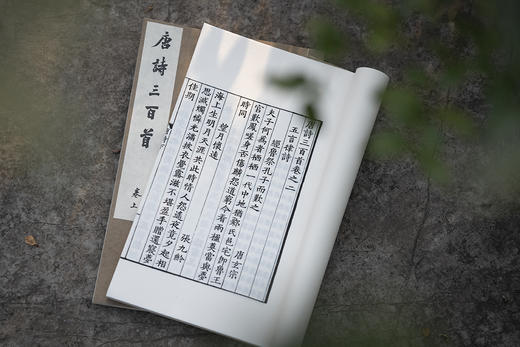 唐詩三百首
卷上
唐詩三百首卷之二
五言律詩
經魯祭孔子而歎之 唐玄宗
夫子何為者栖栖一代中地猶鄹氏邑宅即魯王
宮歎鳳嗟身否傷麟怨道窮今看兩楹奠當與夢
時同
望月懷遠 張九齡
海上生明月天涯共此時情人怨遙夜竟夕起相
思滅燭憐光滿披衣覺露滋不堪盈手贈還寢夢
佳期